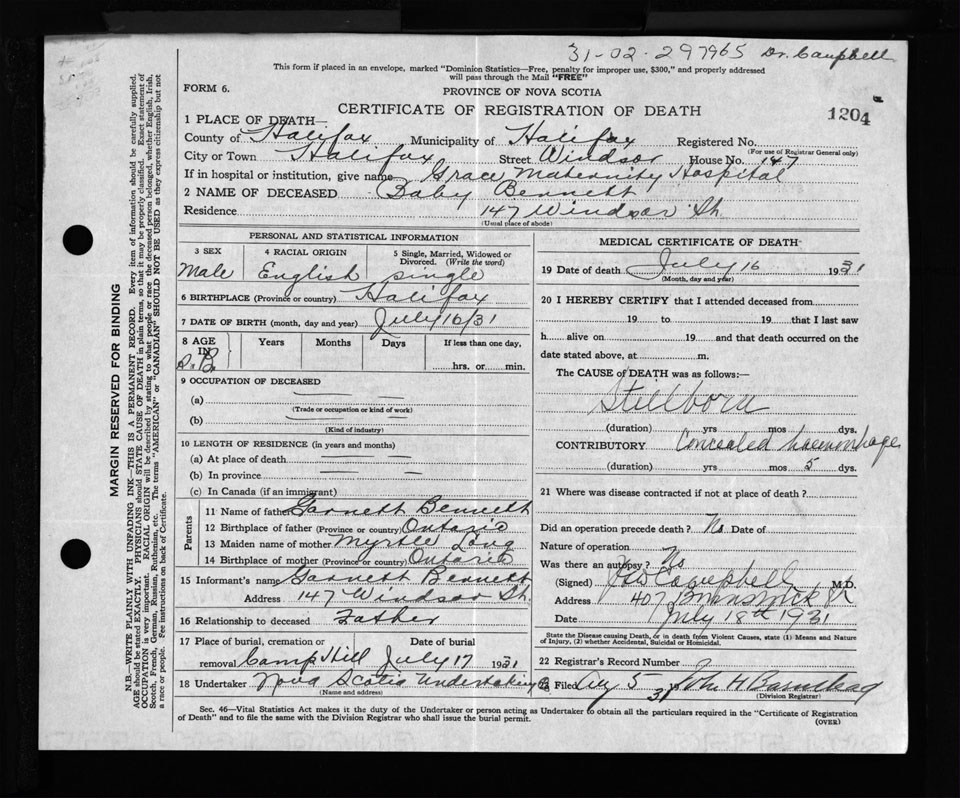 31-02-297965 Dr. Campbell
This form if placed in an envelope, marked "Dominion Statistics—Free, penalty for improper use, $300," and properly addressed
will pass through the Mail "FREE"
FORM 6.
PROVINCE OF NOVA SCOTIA
CERTIFICATE OF REGISTRATION OF DEATH
1204
1 PLACE OF DEATH—
County of Halifax Municipality of Halifax Registered No.
(For use of Registrar General only)
City or Town Halifax Street Windsor House No. 147
If in hospital or institution, give name Grace Maternity Hospital
2 NAME OF DECEASED Baby Bennett
Residence 147 Windsor St.
(Usual place of abode)
MARGIN RESERVED FOR BINDING
N.B.—WRITE PLAINLY WITH UNFADING INK—THIS IS A PERMANENT RECORD. Every item of information should be carefully supplied.
AGE should be stated EXACTLY. PHYSICIANS should STATE CAUSE OF DEATH in plain terms, so that it may be properly classified. Exact statement of
OCCUPATION is very important. RACIAL ORIGIN will be described by stating to what people or race the deceased person belonged, whether English, Irish,
Scotch, French, German, Russian, Ruthenian, etc. The terms "AMERICAN" or "CANADIAN" SHOULD NOT BE USED as they express citizenship but not
a race or people. Fee instructions on back of Certificate.
PERSONAL AND STATISTICAL INFORMATION
3 SEX 4 RACIAL ORIGIN 5 Single, Married, Widowed or
Divorced. (Write the word)
Male English single
6 BIRTHPLACE (Province or country) Halifax
7 DATE OF BIRTH (month, day and year) July 16/31
8 AGE Years Months Days If less than one day,
IN
S.B. hrs. or min.
9 OCCUPATION OF DECEASED
(a)
(Trade or occupation or kind of work)
(b)
(Kind of industry)
10 LENGTH OF RESIDENCE (in years and months)
(a) At place of death
(b) In province
(c) In Canada (if an immigrant)
Parents
11 Name of father Garnett Bennett
12 Birthplace of father (Province or country) Ontario
13 Maiden name of mother Myrtle Long
14 Birthplace of mother (Province or country) Ontario
15 Informant's name Garnett Bennett
Address 147 Windsor St.
16 Relationship to deceased Father
17 Place of burial, cremation or Date of burial
removal Camp Hill July 17 1931
18 Undertaker Nova Scotia Undertaking Co
(Name and address)
MEDICAL CERTIFICATE OF DEATH
19 Date of death July 16 1931
(Month, day and year)
20 I HEREBY CERTIFY that I attended deceased from
19 to 19 that I last saw
h alive on 19 and that death occurred on the
date stated above, at m.
The CAUSE of DEATH was as follows:—
Stillborn
(duration) yrs mos dys.
CONTRIBUTORY Concealed haemorrhage
(duration) yrs mos 5 dys.
21 Where was disease contracted if not at place of death?
Did an operation precede death? No Date of
Nature of operation
Was there an autopsy? No
(Signed) Campbell M.D.
Address 407 Brunswick St
July 18th 1931
State the Disease causing Death, or in death from Violent Causes, state (1) Means and Nature
of Injury, (2) whether Accidental, Suicidal or Homicidal.
22 Registrar's Record Number
Filed Aug 5 31 John H Barnstead
(Division Registrar)
Sec. 46—Vital Statistics Act makes it the duty of the Undertaker or person acting as Undertaker to obtain all the particulars required in the "Certificate of Registration
of Death" and to file the same with the Division Registrar who shall issue the burial permit.
(OVER)